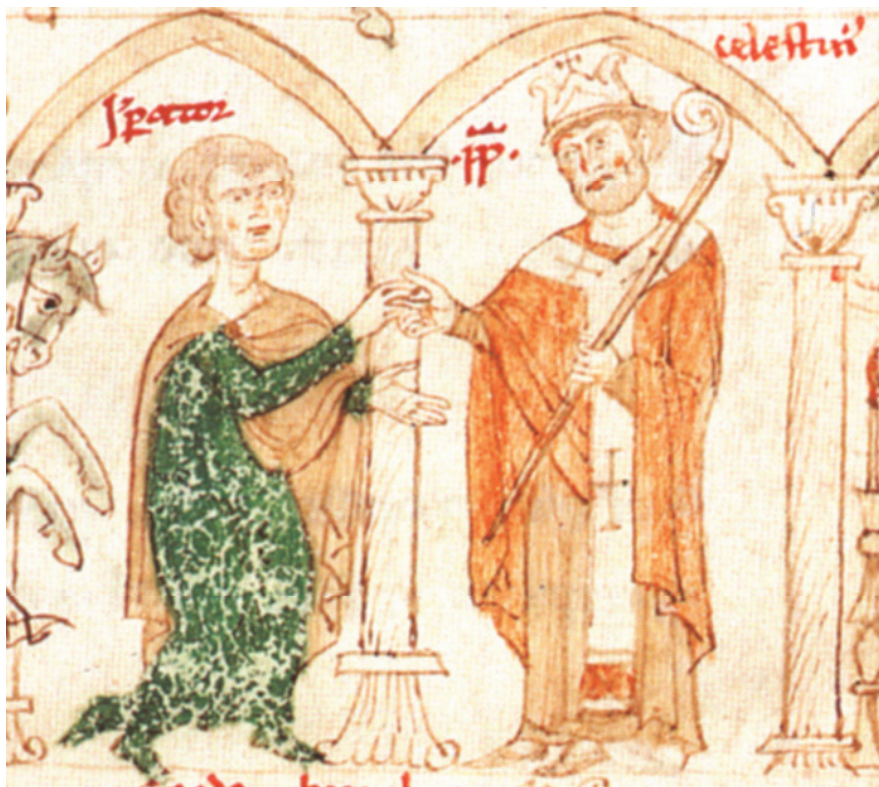 celestin'
I'pator
·pp·